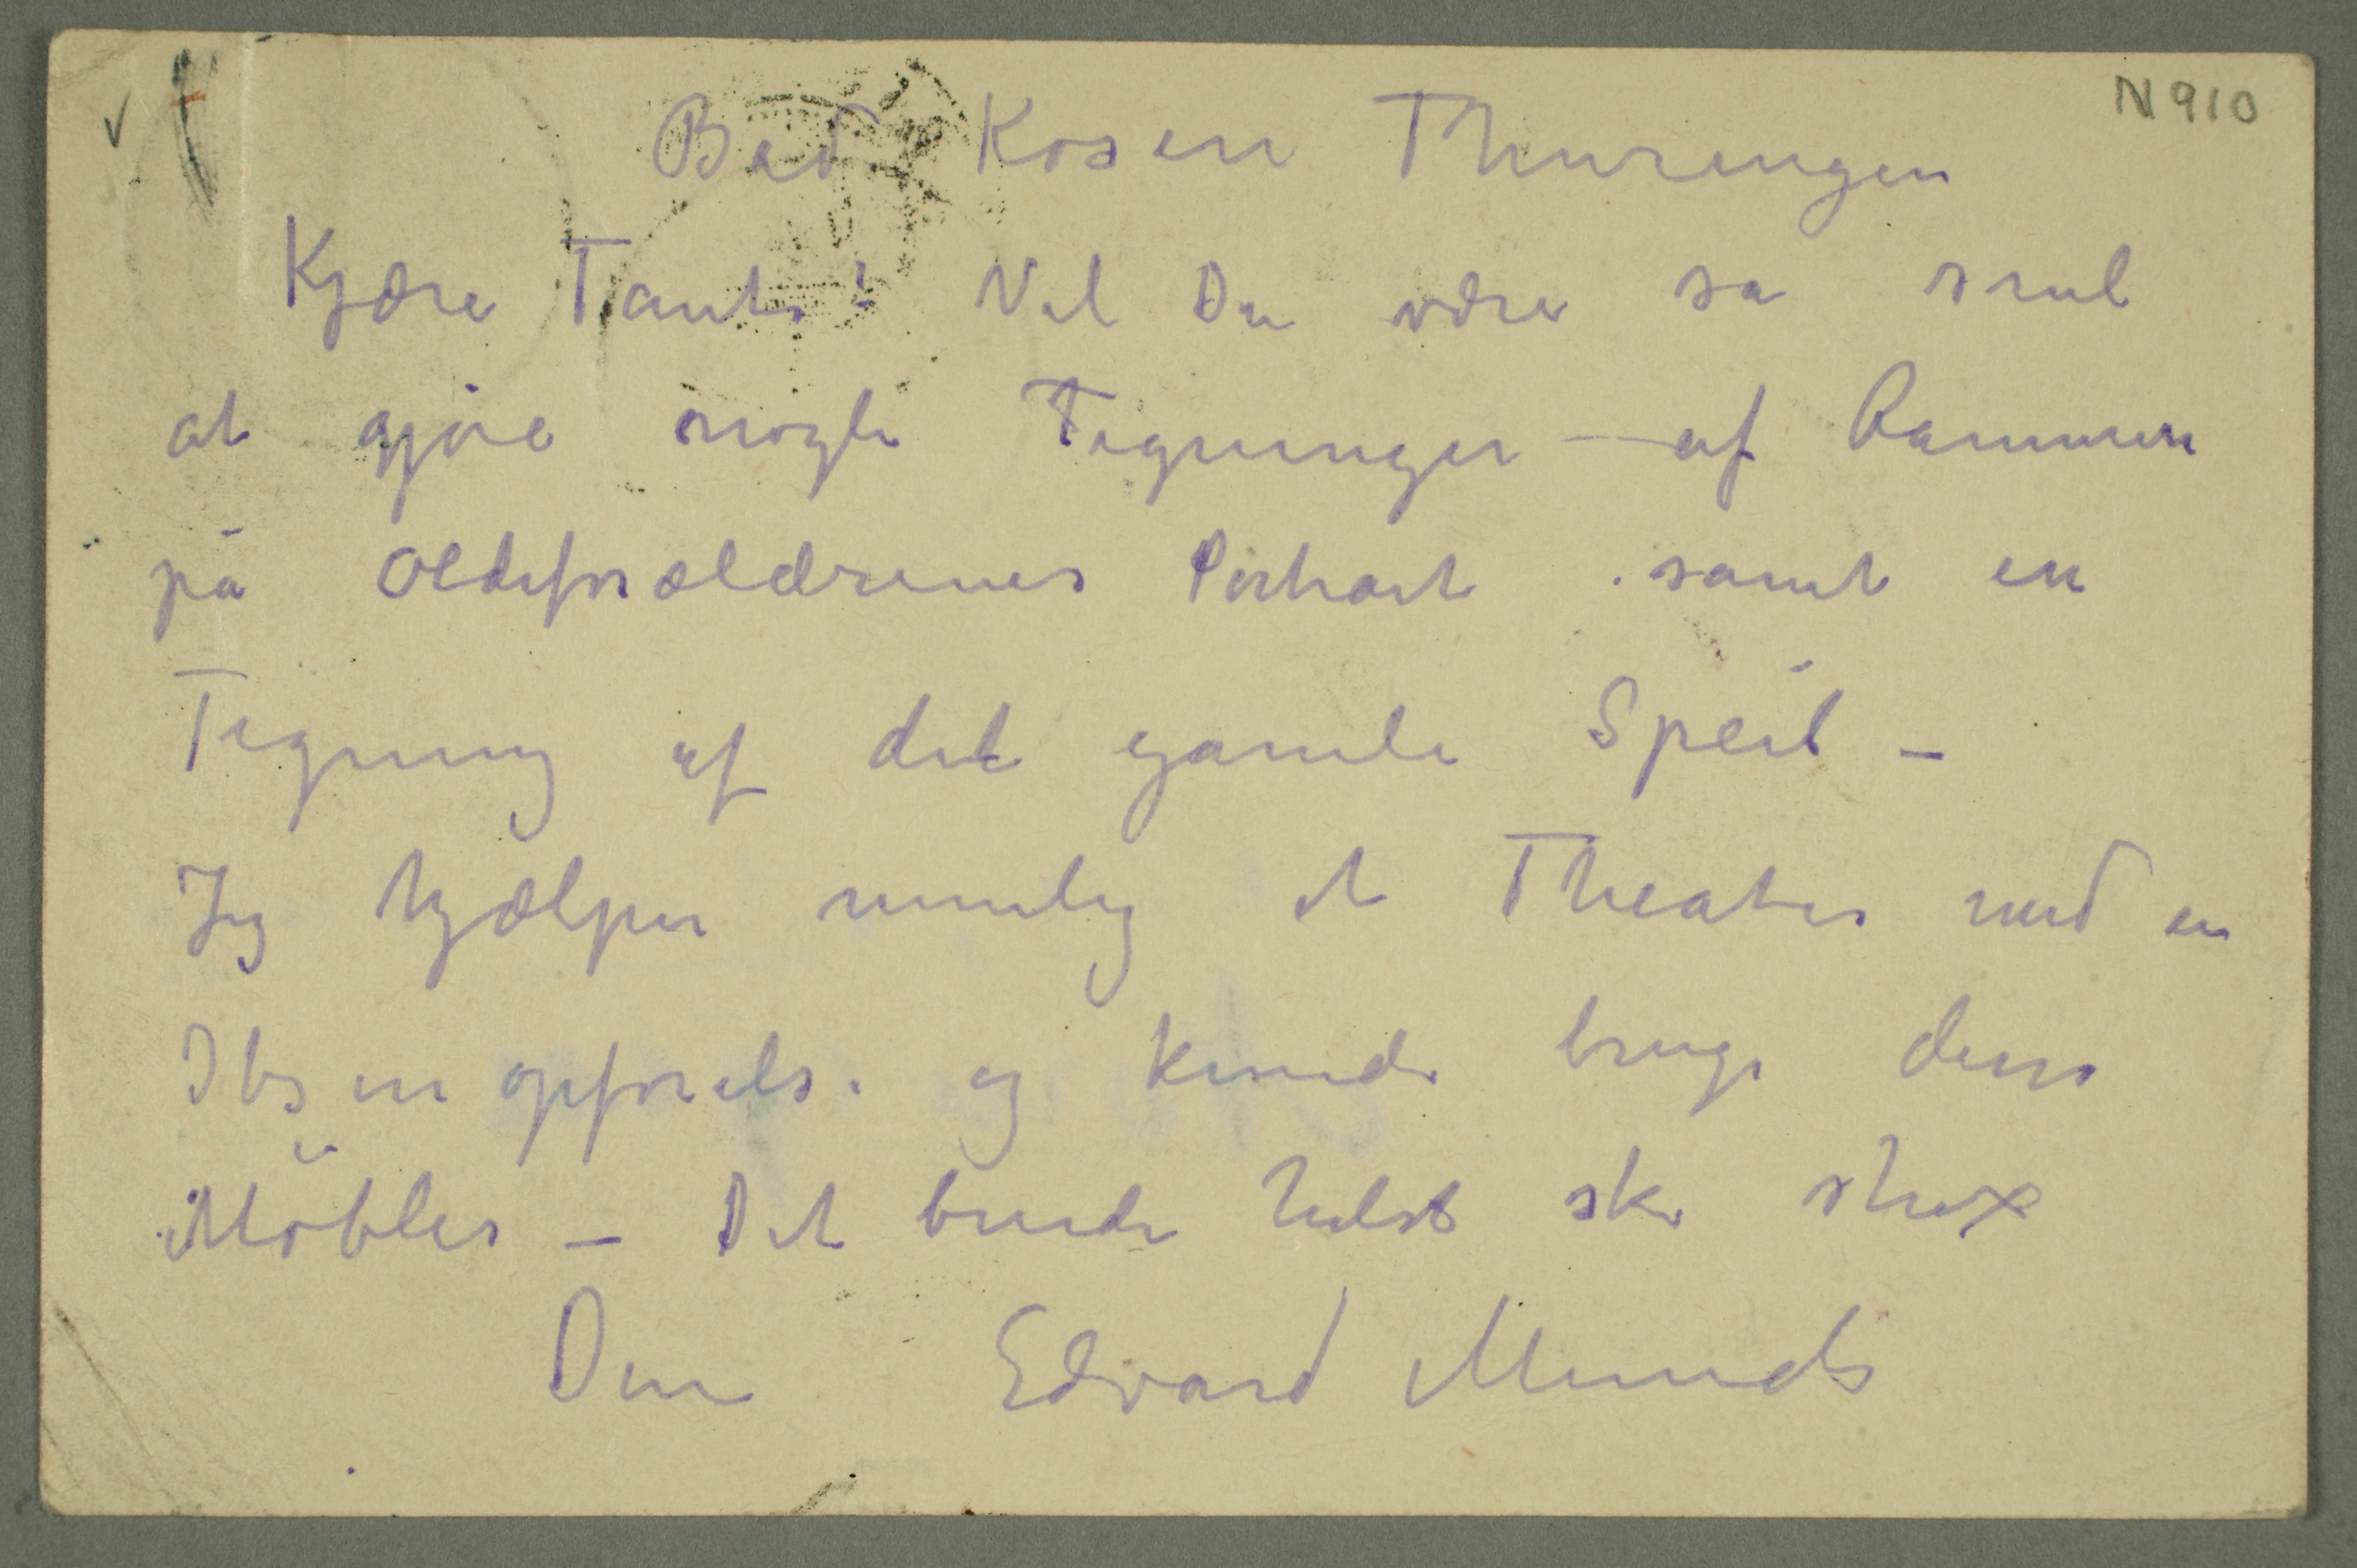 N 910
Bad Kosen Thuringen
Kjære Tante! Vil Du være sa snil
at gjøre nogle Tegninger af Rammen
på Oldeforældrenes Portræt samt en
Tegning af det gamle Speil –
Jeg hjælper nemlig et Theater med en
Ibsenopførelse og kunde bruge disse
Möbler – Det burde helst ske strax
Din Edvard Munch